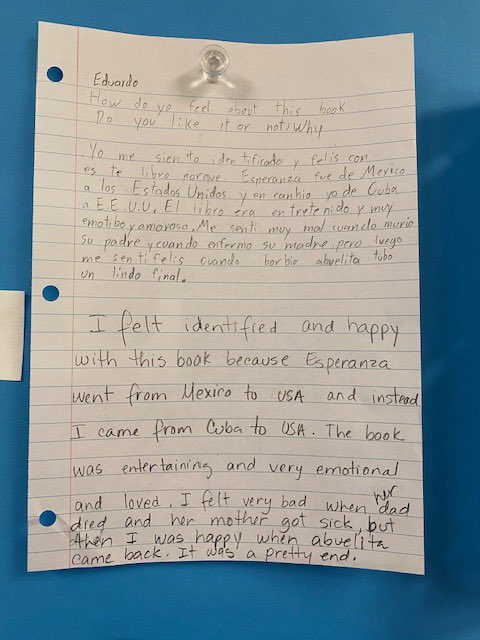 Eduardo
How do yo feel about this book
Do you like it or not? Why
Yo me siento identificado y felis con
es te libro porque Esperanza fue de Mexico
a los Estados Unidos y en canbio yo de Cuba
a E.E.U.U. El libro era entretenido y muy
emotibo y amoroso. Me senti muy mal cuando murio
su padre y cuando enfermo su madre, pero luego
me senti felis cuando abuelita tubo
un lindo final.
I felt identified and happy
with this book because Esperanza
went from Mexico to USA and instead
I came from Cuba to USA. The book
was entertaining and very emotional
and loved. I felt very bad when her dad
died and her mother got sick, but
then I was happy when abuelita
came back. It was a pretty end.